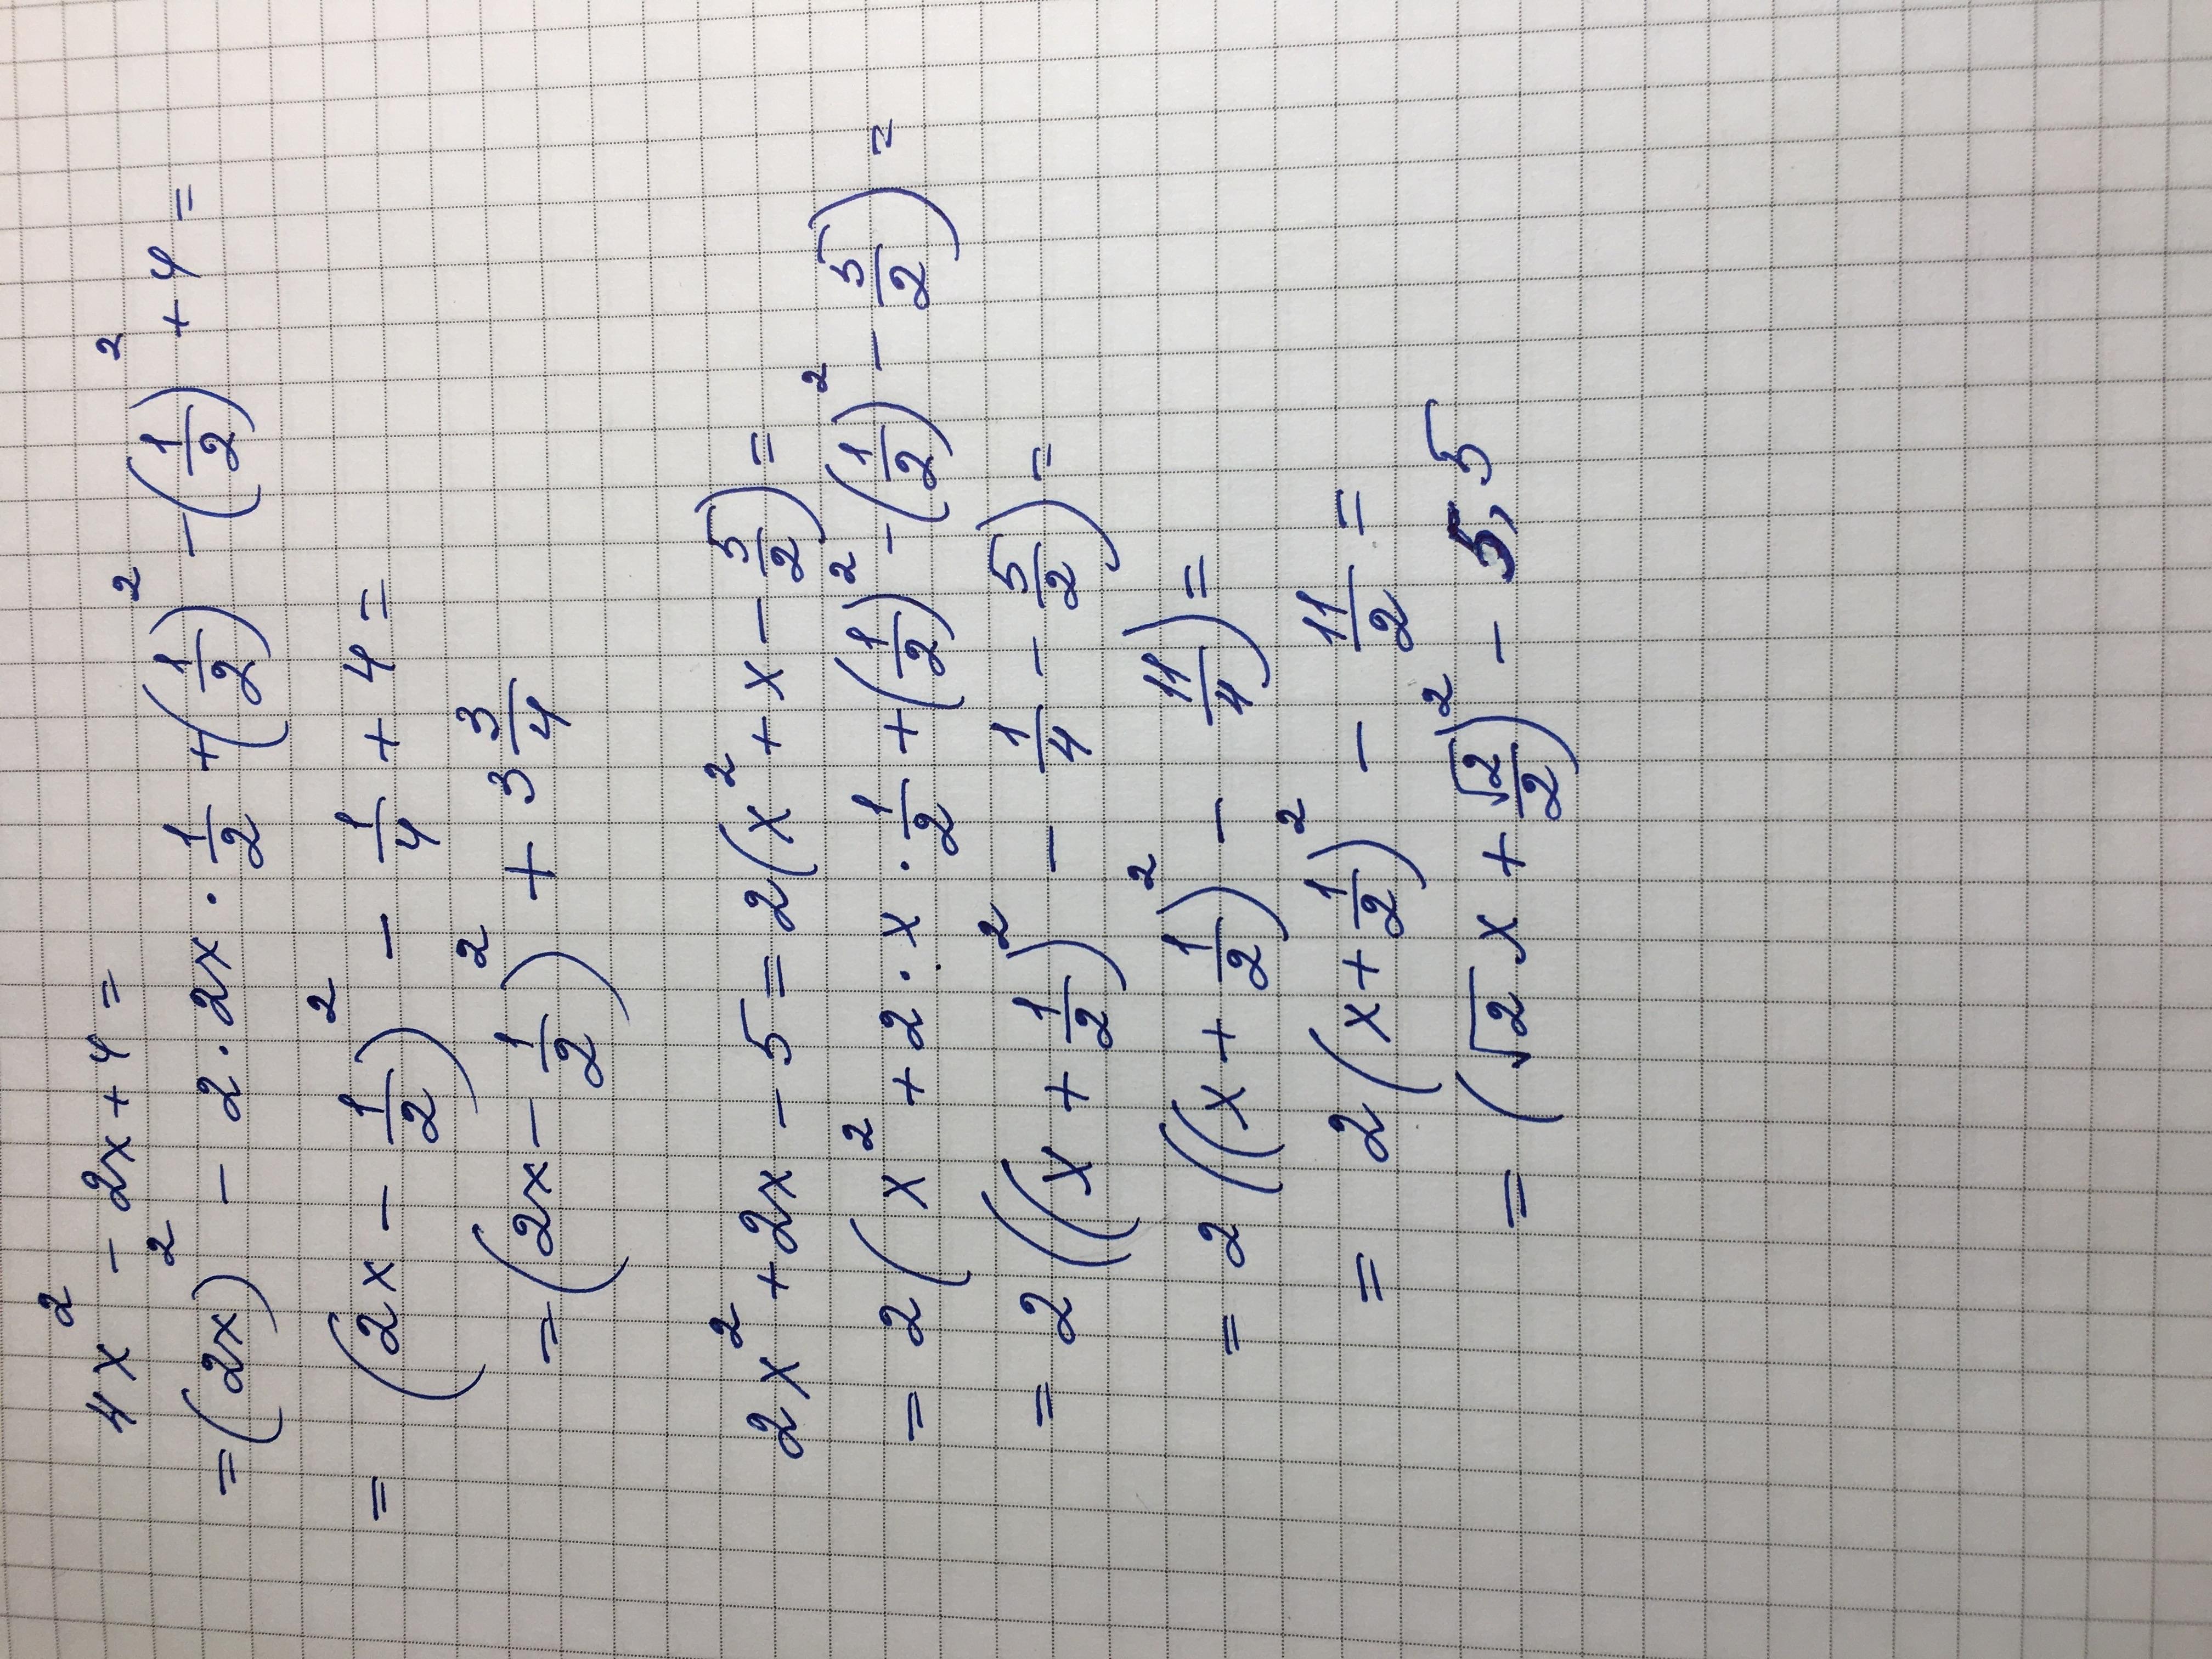 4x² - 2x + 4 =
= (2x)² - 2 · 2x · 1/2 + (1/2)² - (1/2)² + 4 =
= (2x - 1/2)² - 1/4 + 4 =
= (2x - 1/2)² + 3 3/4
2x² + 2x - 5 = 2(x² + x - 5/2) =
= 2(x² + 2 · x · 1/2 + (1/2)² - (1/2)² - 5/2) =
= 2((x + 1/2)² - 1/4 - 5/2) =
= 2((x + 1/2)² - 11/4) =
= 2(x + 1/2)² - 11/2 =
= (√2 x + √2/2)² - 5,5